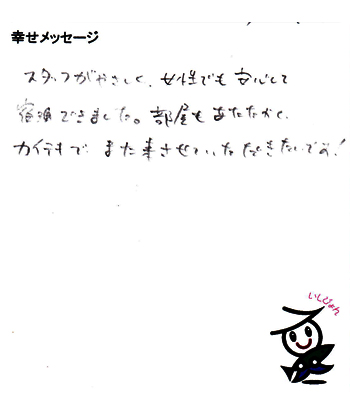 幸せメッセージ
スタッフがやさしく、女性でも安心して
宿泊できました。部屋もあたたかく、
カイテキで また来させていただきたいです!
いしぴょん